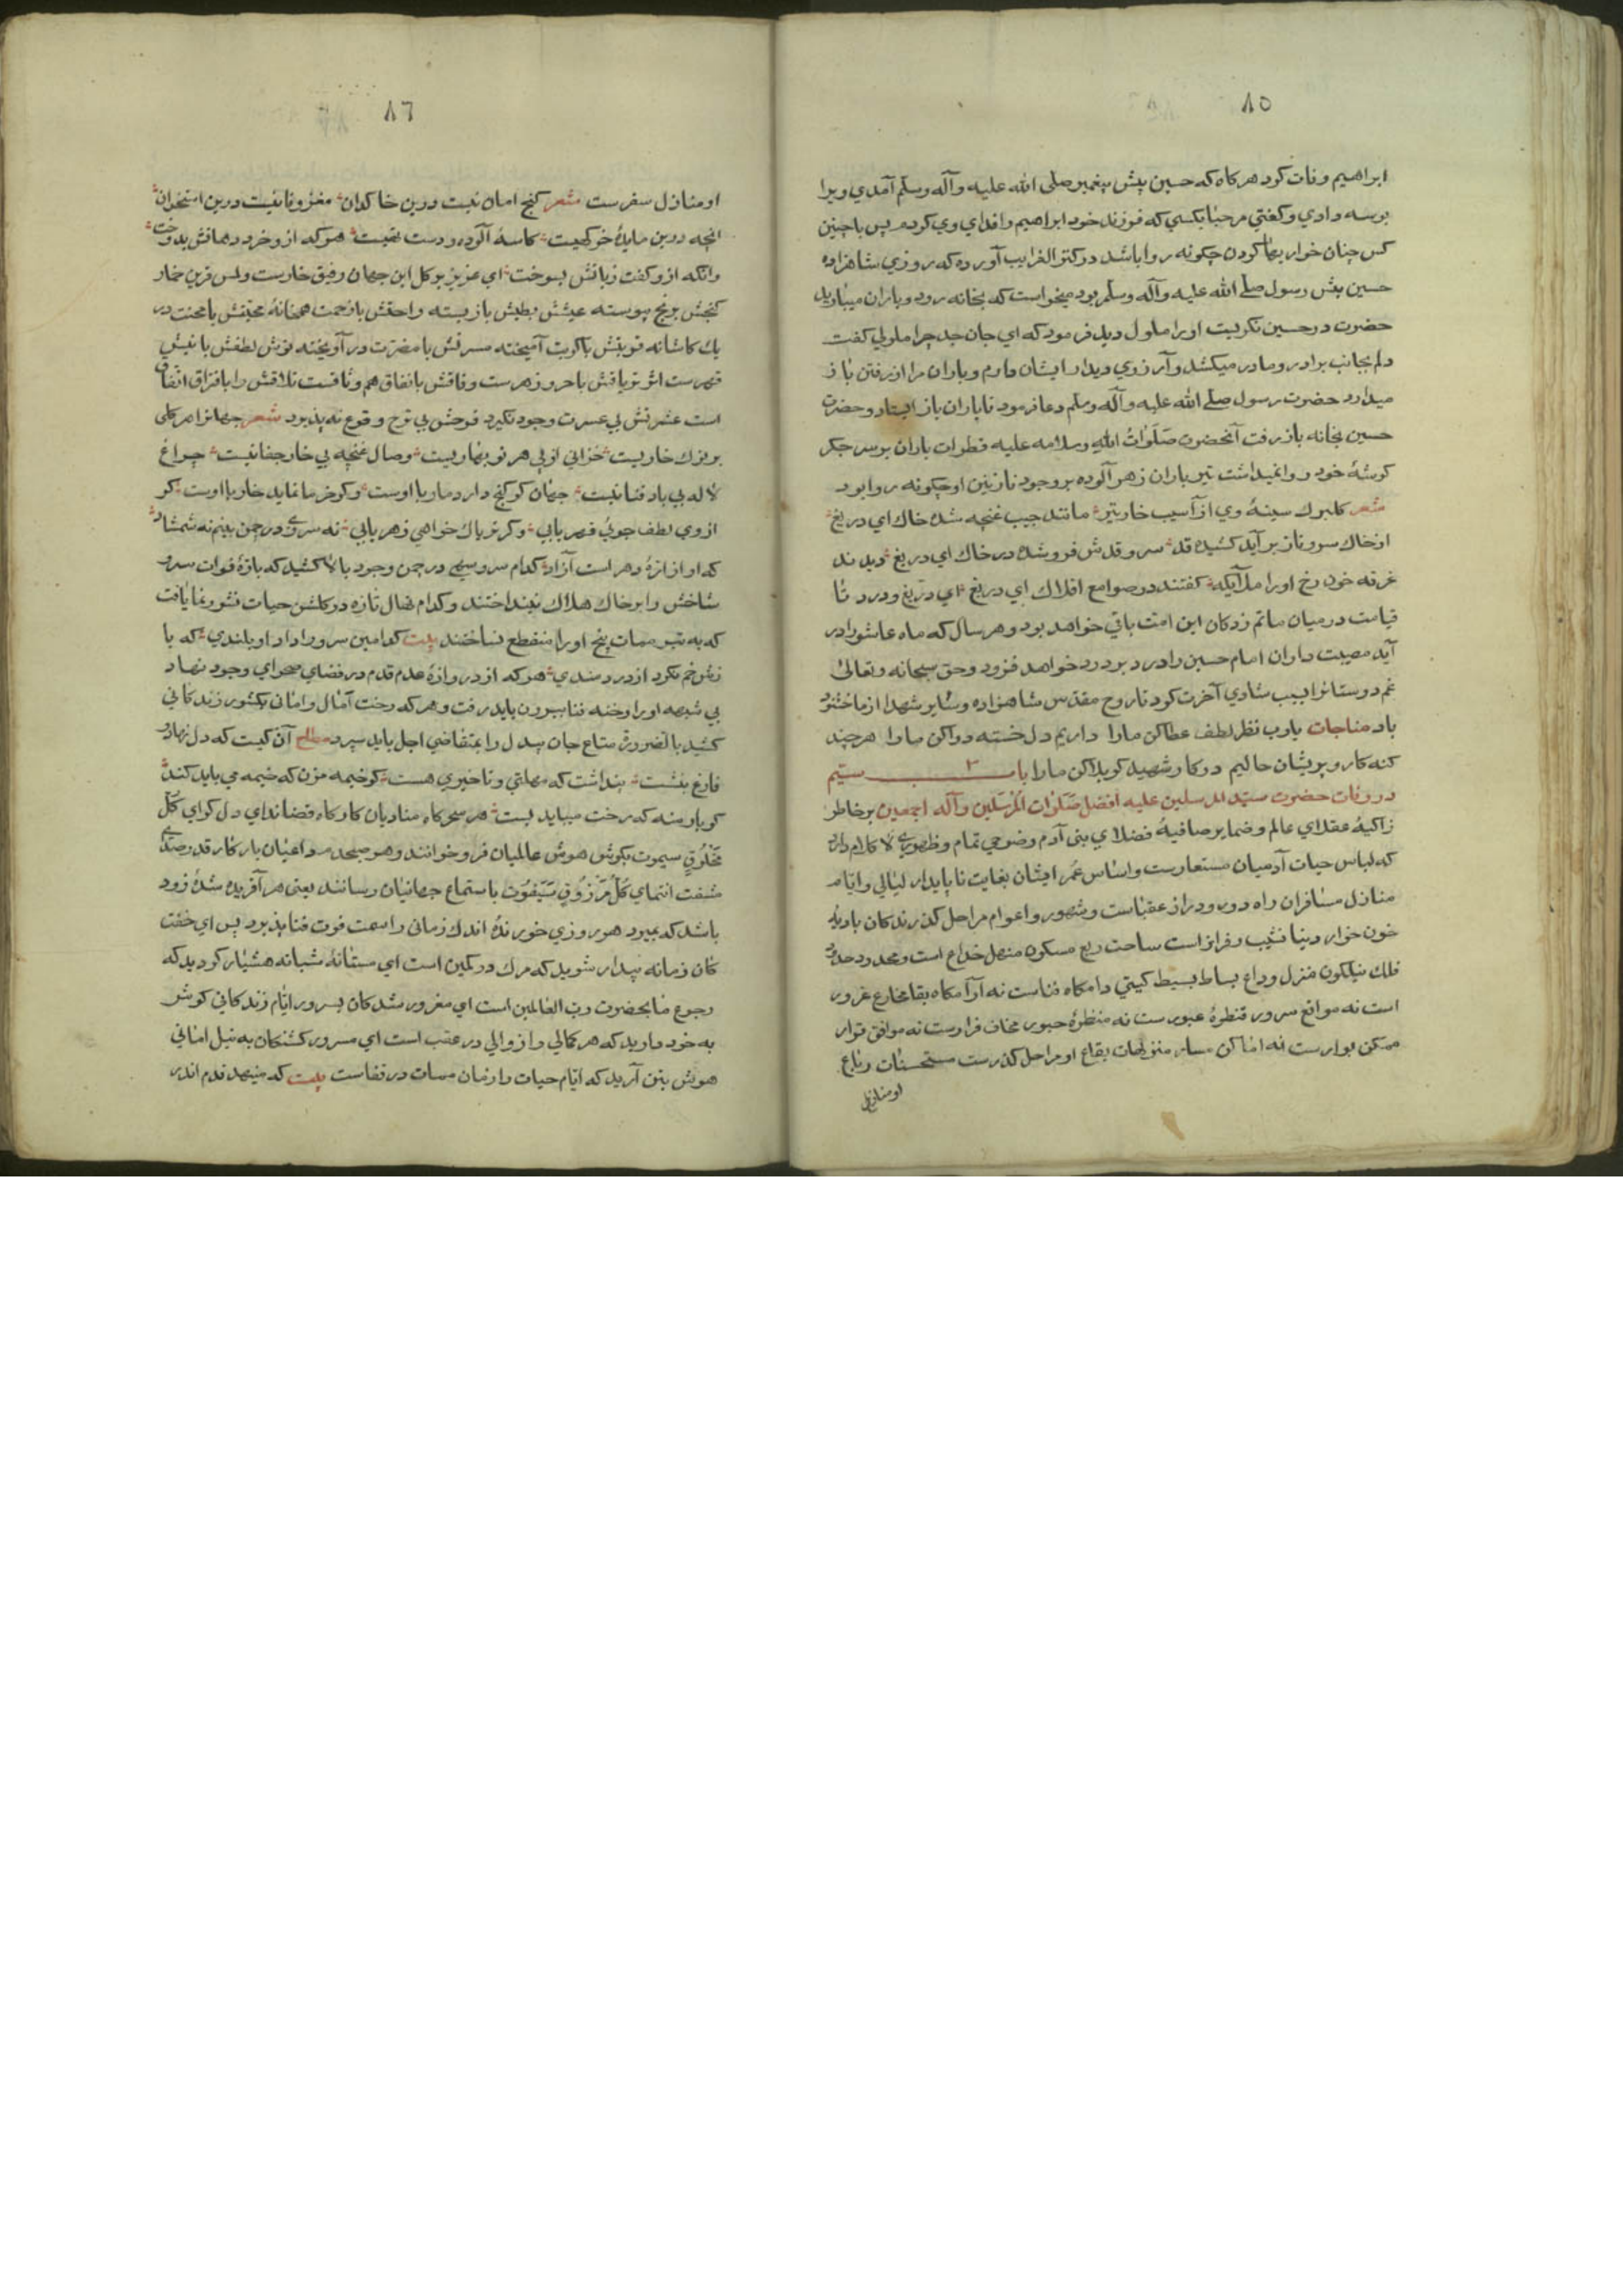 ٨٥
ابراهيم وفات كرد هركاه كه حسين پيش پيغمبر صلى الله عليه وآله وسلم آمدي ويرا
بوسه دادي وكفتي مرحبا بكسي كه فرزند خود ابراهيم را فداي وي كردم پس با چنين
كس چنان خواريها كردن چكونه روا باشد در كنز الغرايب آورده كه روزي شاهزاده
حسين پيش رسول صلى الله عليه وآله وسلم بود ميخواست كه بخانه رود و باران ميباريد
حضرت در حسين نكريست اورا ملول ديد فرمود كه اي جان جد چرا ملولي كفت
دلم بجانب برادر و مادر ميكشد و آرزوي ديدار ايشان دارم و باران مرا از رفتن باز
ميدارد حضرت رسول صلى الله عليه وآله وسلم دعا فرمود تا باران باز ايستاد و حضرت
حسين بخانه باز رفت آنحضرت صلوات الله وسلامه عليه قطرات باران بر سر جكر
كوشهٔ خود روا نميداشت تير باران زهر آلوده بر وجود نازنين او چكونه روا بود
شعر كلبرك سينهٔ وي از آسيب خار تير مانند جيب غنچه شده خاك اي دريغ
از خاك سرو ناز بر آيد كشيده قد سرو قدش فرو شده در خاك اي دريغ ديدند
غرقه خون رخ اورا ملايكه كفتند در صوامع افلاك اي دريغ اي دريغ ودرد تا
قيامت در ميان ماتم زدكان اين امت باقي خواهد بود و هر سال كه ماه عاشورا در
آيد مصيبت داران امام حسين را درد بر درد خواهد فزود وحق سبحانه وتعالى
غم دوستانرا بسبب شادي آخرت كرداناد وروح مقدس شاهزاده وساير شهدا از ما خشنود
باد مناجات يارب نظر لطف عطا كن مارا داريم دل خسته دوا كن مارا هرچند
كنه كار و پريشان حاليم در كار شهيد كربلا كن مارا باب سيم
در وفات حضرت سيد المرسلين عليه افضل صلوات المرسلين وآله اجمعين بر خاطر
زاكيهٔ عقلاي عالم وضماير صافيهٔ فضلاي بني آدم وضوحي تمام وظهوري لا كلام دارد
كه لباس حيات آدميان مستعارست واساس عمر ايشان بغايت ناپايدار ليالي وايام
منازل مسافران راه دور و دراز عقباست وشهور واعوام مراحل كذرندكان باديهٔ
خون خوار دنيا نشيب وفراز است ساحت ربع مسكون منهل خداع است ومحدد حدود
فلك نيلكون منزل وداع بساط بسيط كيتي دامكاه فناست نه آرامكاه بقا مخارع غرور
است نه مواقع سرور قنطرهٔ عبورست نه منظرهٔ حبور مخاف فرارست نه مواقف قرار
ممكن بوارست نه اماكن مسار متنزهات بقاع او مراحل كذرست مستحسنات رباع
او منازل
٨٦
او منازل سفرست شعر كنج امان نيست درين خاكدان مغز وفا نيست درين استخوان
انچه درين مايدهٔ خركهيست كاسهٔ آلوده و دست تهيست هركه ازو خرد دهانش بدوخت
وانكه ازو كفت زبانش بسوخت اي عزيز بر كل اين جهان رفيق خارست ولبس قرين خمار
كنجش برنج پيوسته عيشش بطيش باز بسته راحتش با زحمت همخانهٔ محبتش با محنت در
يك كاشانه قربتش با كربت آميخته مسرتش با مضرت در آويخته نوش لطفش با نيش
قهرست اثر ترياقش با حر و زهرست وفاقش با نفاق هم وثاقست تلاقش را با فراق اتفاق
است عشرتش بي عسرت وجود نكيرد فرحش بي ترح وقوع نه پذيرد شعر جهانرا هر كلي
بر نوك خاريست خزاني از پي هر نوبهاريست وصال غنچه بي خار جفا نيست چراغ
لاله بي باد فنا نيست جهان كر كنج دارد مار با اوست وكر خرما نمايد خار با اوست كر
از وي لطف جوئي قهر يابي وكر ترياك خواهي زهر يابي نه سروي در چمن بينم نه شمشاد
كه او از ارهٔ دهر است آزاد كدام سرو سهي در چمن وجود بالا كشيد كه بازهٔ فوات سرو
شاخش را بر خاك هلاك نينداختند وكدام نهال تازه در كلشن حيات نشو ونما يافت
كه به تبر ممات بيخ اورا منقطع نساختند بيت كدامين سرو را داد او بلندي كه با
زش خم نكرد از دردمندي هركه از دروازهٔ عدم قدم در فضاي صحراي وجود نهاد
بي شبهه اورا رخنه فنا بيرون بايد رفت وهركه رخت آمال واماني بكشور زندكاني
كشيد بالضرورة متاع جان بيدل را بمتقاضي اجل بايد سپرد مطلع آن كيست كه دل نهاد و
فارغ بنشست پنداشت كه مهلتي وتاخيري هست كو خيمه مزن كه خيمه مي بايد كند
كو بار منه كه رخت ميبايد بست هر سحركاه مناديان كاركاه قضا نداي دل كراي كل
مخلوق سيموت بكوش هوش عالميان فرو خوانند وهر صبحدم داعيان باركاه قدر صداي
مشقت انتماي كل مرزوق سيفوت باستماع جهانيان رسانند يعني هر آفريده شدهٔ زود
باشد كه بميرد هر روزي خورندهٔ اندك زماني را سمت فوت فنا پذيرد پس اي خفت
كان زمانه بيدار شويد كه مرك در كمين است اي مستانهٔ شبانه هشيار كرديد كه
رجوع ما بحضرت رب العالمين است اي مغرور شدكان بسرور ايام زندكاني كوش
به خود داريد كه هر كمالي را زوالي در عقب است اي مسرور كشتكان به نيل اماني
هوش بتن آريد كه ايام حيات را زمان ممات در قفاست بيت كه مينهد قدم اندر